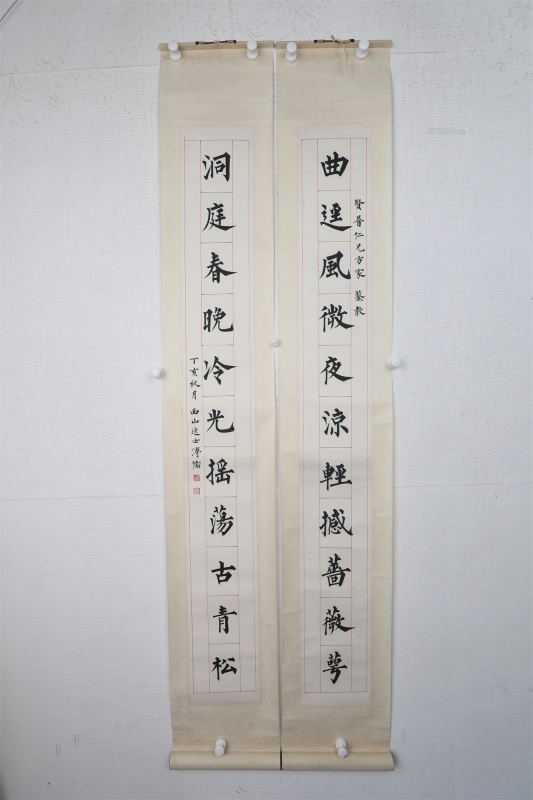 曲逕風微夜涼輕撼薔薇萼
賢普仁兄方家 鑒教
洞庭春晚冷光摇蕩古青松
丁亥秋月 西山逸士溥儒